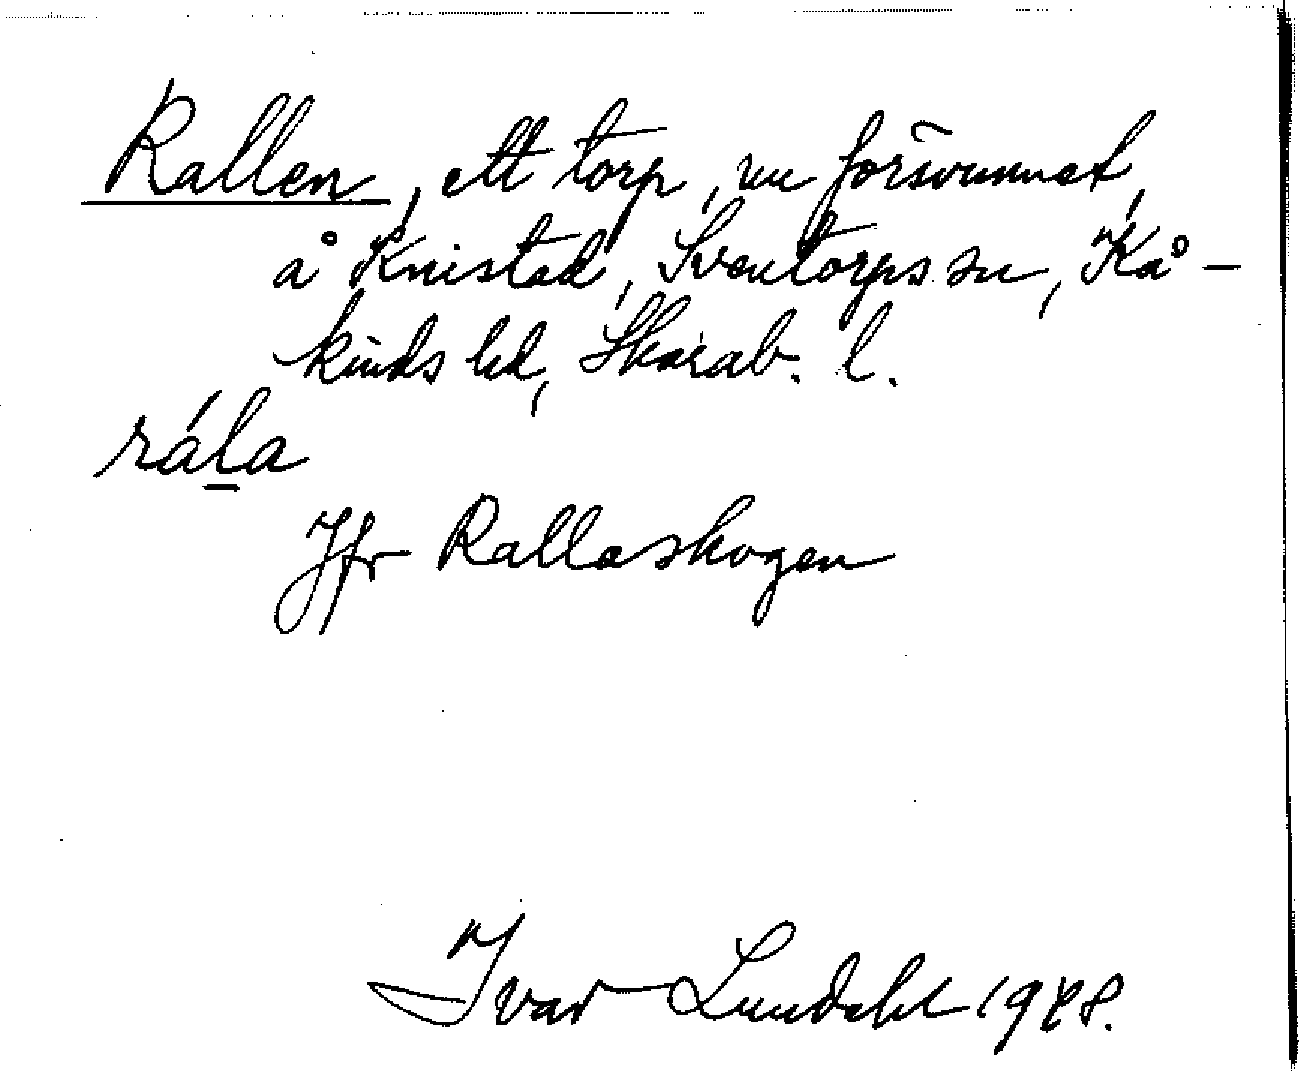 Rallen, ett torp, nu försvunnet,
å Knistad, Sventorps sn, Kå-
kinds hd, Skarab. l.
rála
Jfr Rallaskogen
Ivar Lundahl 1948.